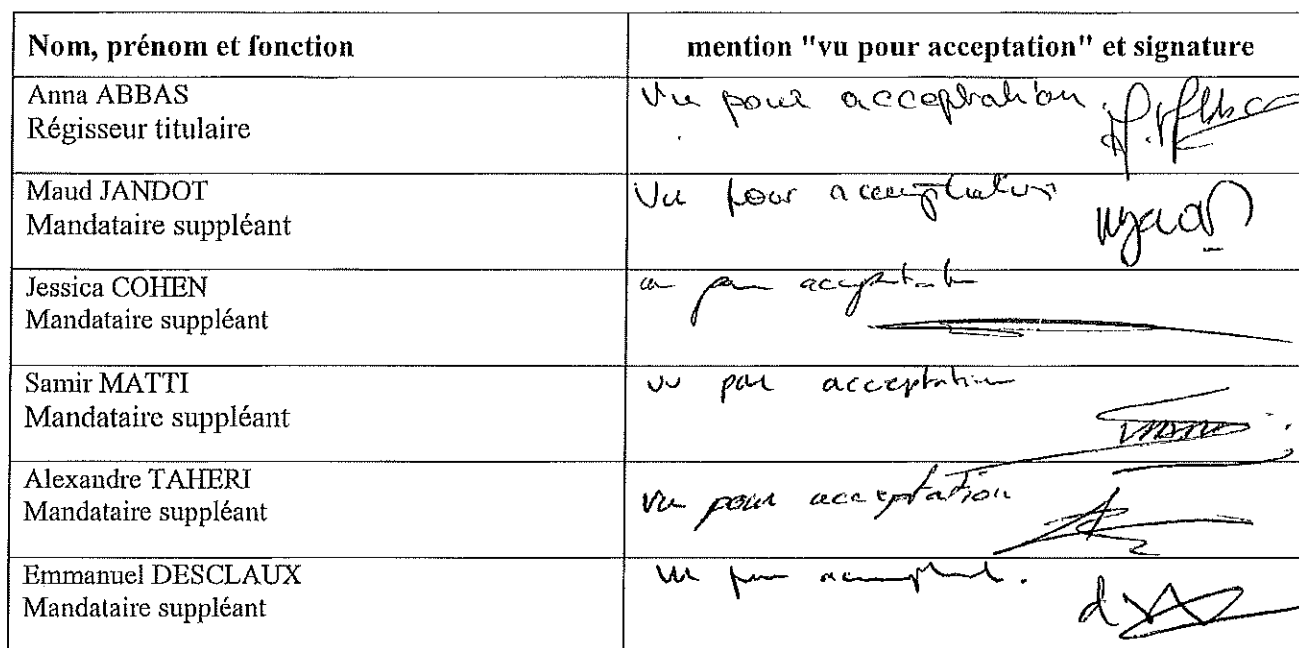 Nom, prénom et fonction
mention "vu pour acceptation" et signature
Anna ABBAS
Régisseur titulaire
Vu pour acceptation.
Maud JANDOT
Mandataire suppléant
Vu pour acceptation
Jessica COHEN
Mandataire suppléant
acceptation
Samir MATTI
Mandataire suppléant
vu pour acceptation
Alexandre TAHERI
Mandataire suppléant
vu pour acceptation
Emmanuel DESCLAUX
Mandataire suppléant
vu pour